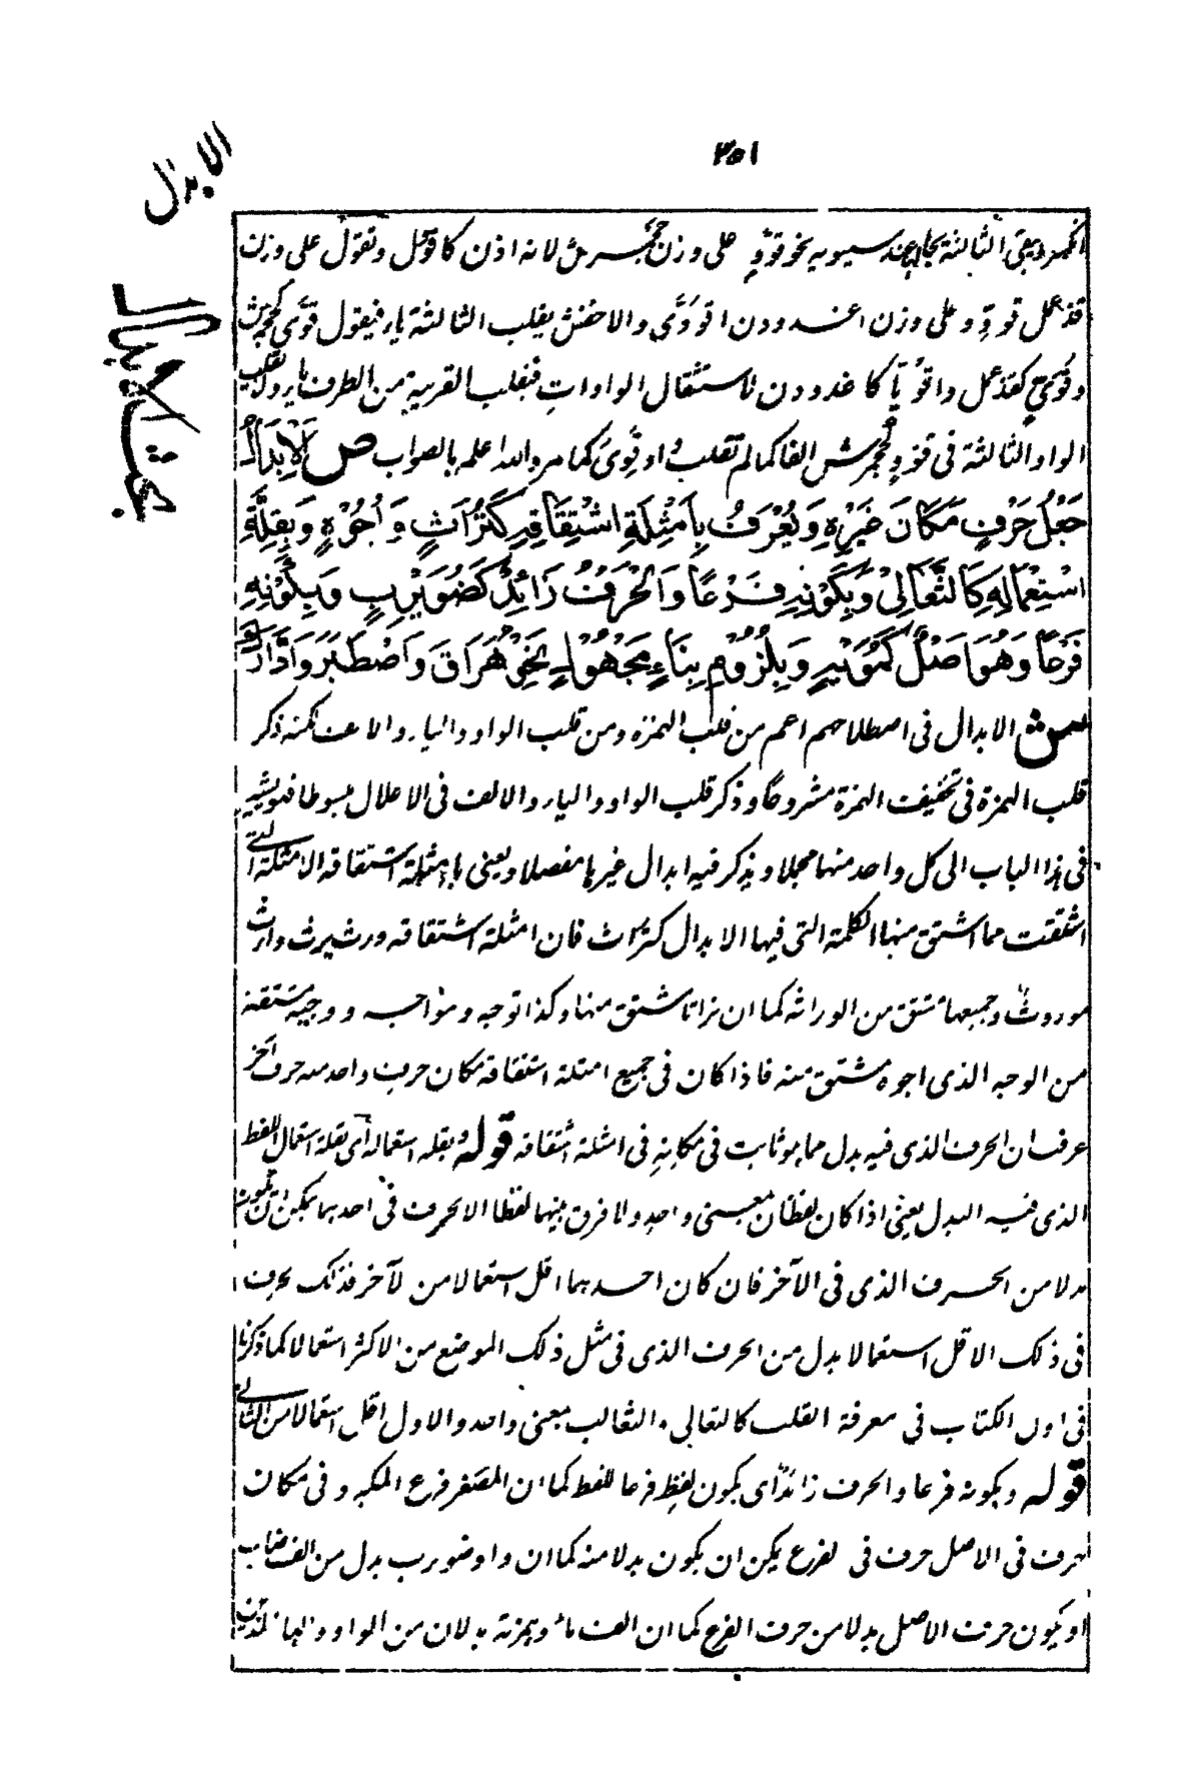 ٣٥١
الابدال
بحث الابدال
الثالثة عند سيبويه نحو قوّوٍ على وزن جحمرش لانه اذن كا قوّل وتقول على وزن
قذعمل قووّ وعلى وزن اغدودن اقووّى والاخفش يقلب الثالثة ياء فيقول قوّى كجحمرش
كقذعمل كاغدودن لاستثقال الواوات فيقلب القريبة من الطرف ياء
الواو الثالثة فى قوّوٍ كجحمرش الفا كما لم تقلب واو قوى كما مر والله اعلم بالصواب ص اَلْاِبْدَالُ
جَعْلُ حَرْفٍ مَكَانَ غَيْرِهِ وَيُعْرَفُ بِاَمْثِلَةِ اشْتِقَاقِهِ كَتُرَاثٍ وَاُجُوْهٍ وَبِقِلَّةِ
اسْتِعْمَالِهِ كَالثَّعَالِىْ وَبِكَوْنِهِ فَرْعًا وَالْحَرْفُ زَائِدٌ كَضُوَيْرِبٍ وَبِكَوْنِهِ
فَرْعًا وَهُوَ اَصْلٌ كَمُوَيْهٍ وَبِلُزُوْمِ بِنَاءٍ مَجْهُوْلٍ نَحْوُ هَرَاقَ وَاصْطَبَرَ وَادَّارَكَ
ش الابدال فى اصطلاحهم اعم من قلب الهمزه ومن قلب الواو والياء والالف لكنه ذكر
قلب الهمزة فى تخفيف الهمزة مشروحا وذكر قلب الواو والياء والالف فى الاعلال مبسوطا فهو يشير
فى هذا الباب الى كل واحد منها مجملا ويذكر فيه ابدال غيرها مفصلا ويعنى بامثلة اشتقاقه الامثلة التى
اشتقت مما اشتق منها الكلمة التى فيها الابدال كتراث فان امثلة اشتقاقه ورث يرث وارث
موروث وجميعها مشتق من الوراثه كما ان تراثا مشتق منها وكذا توجه ومواجهه ووجيه مشتقه
من الوجه الذى اجوه مشتق منه فاذا كان فى جميع امثلة اشتقاقه مكان حرف واحد منه حرف آخر
عرفت ان الحرف الذى فيه بدل مما هو ثابت فى مكانه فى امثلة اشتقاقه قوله وبقلة استعماله اى بقلة استعمال اللفظ
الذى فيه البدل يعنى اذا كان لفظان بمعنى واحد ولا فرق بينهما لفظا الا بحرف فى احدهما يمكن ان يكون
بدلا من الحرف الذى فى الآخر فان كان احدهما اقل استعمالا من الآخر فذلك الحرف
فى ذلك الاقل استعمالا بدل من الحرف الذى فى مثل ذلك الموضع من الاكثر استعمالا كما ذكرنا
فى اول الكتاب فى معرفة القلب كالثعالى والثعالب بمعنى واحد والاول اقل استعمالا من الثانى
قوله وبكونه فرعا والحرف زائد اى بكون لفظ فرعا للفظ كما ان المصغر فرع المكبر وفى مكان
حرف فى الاصل حرف فى الفرع يمكن ان يكون بدلا منه كما ان واو ضويرب بدل من الف ضارب
او يكون حرف الاصل بدلا من حرف الفرع كما ان الف ماء وهمزته بدلان من الواو والهاء اللذين